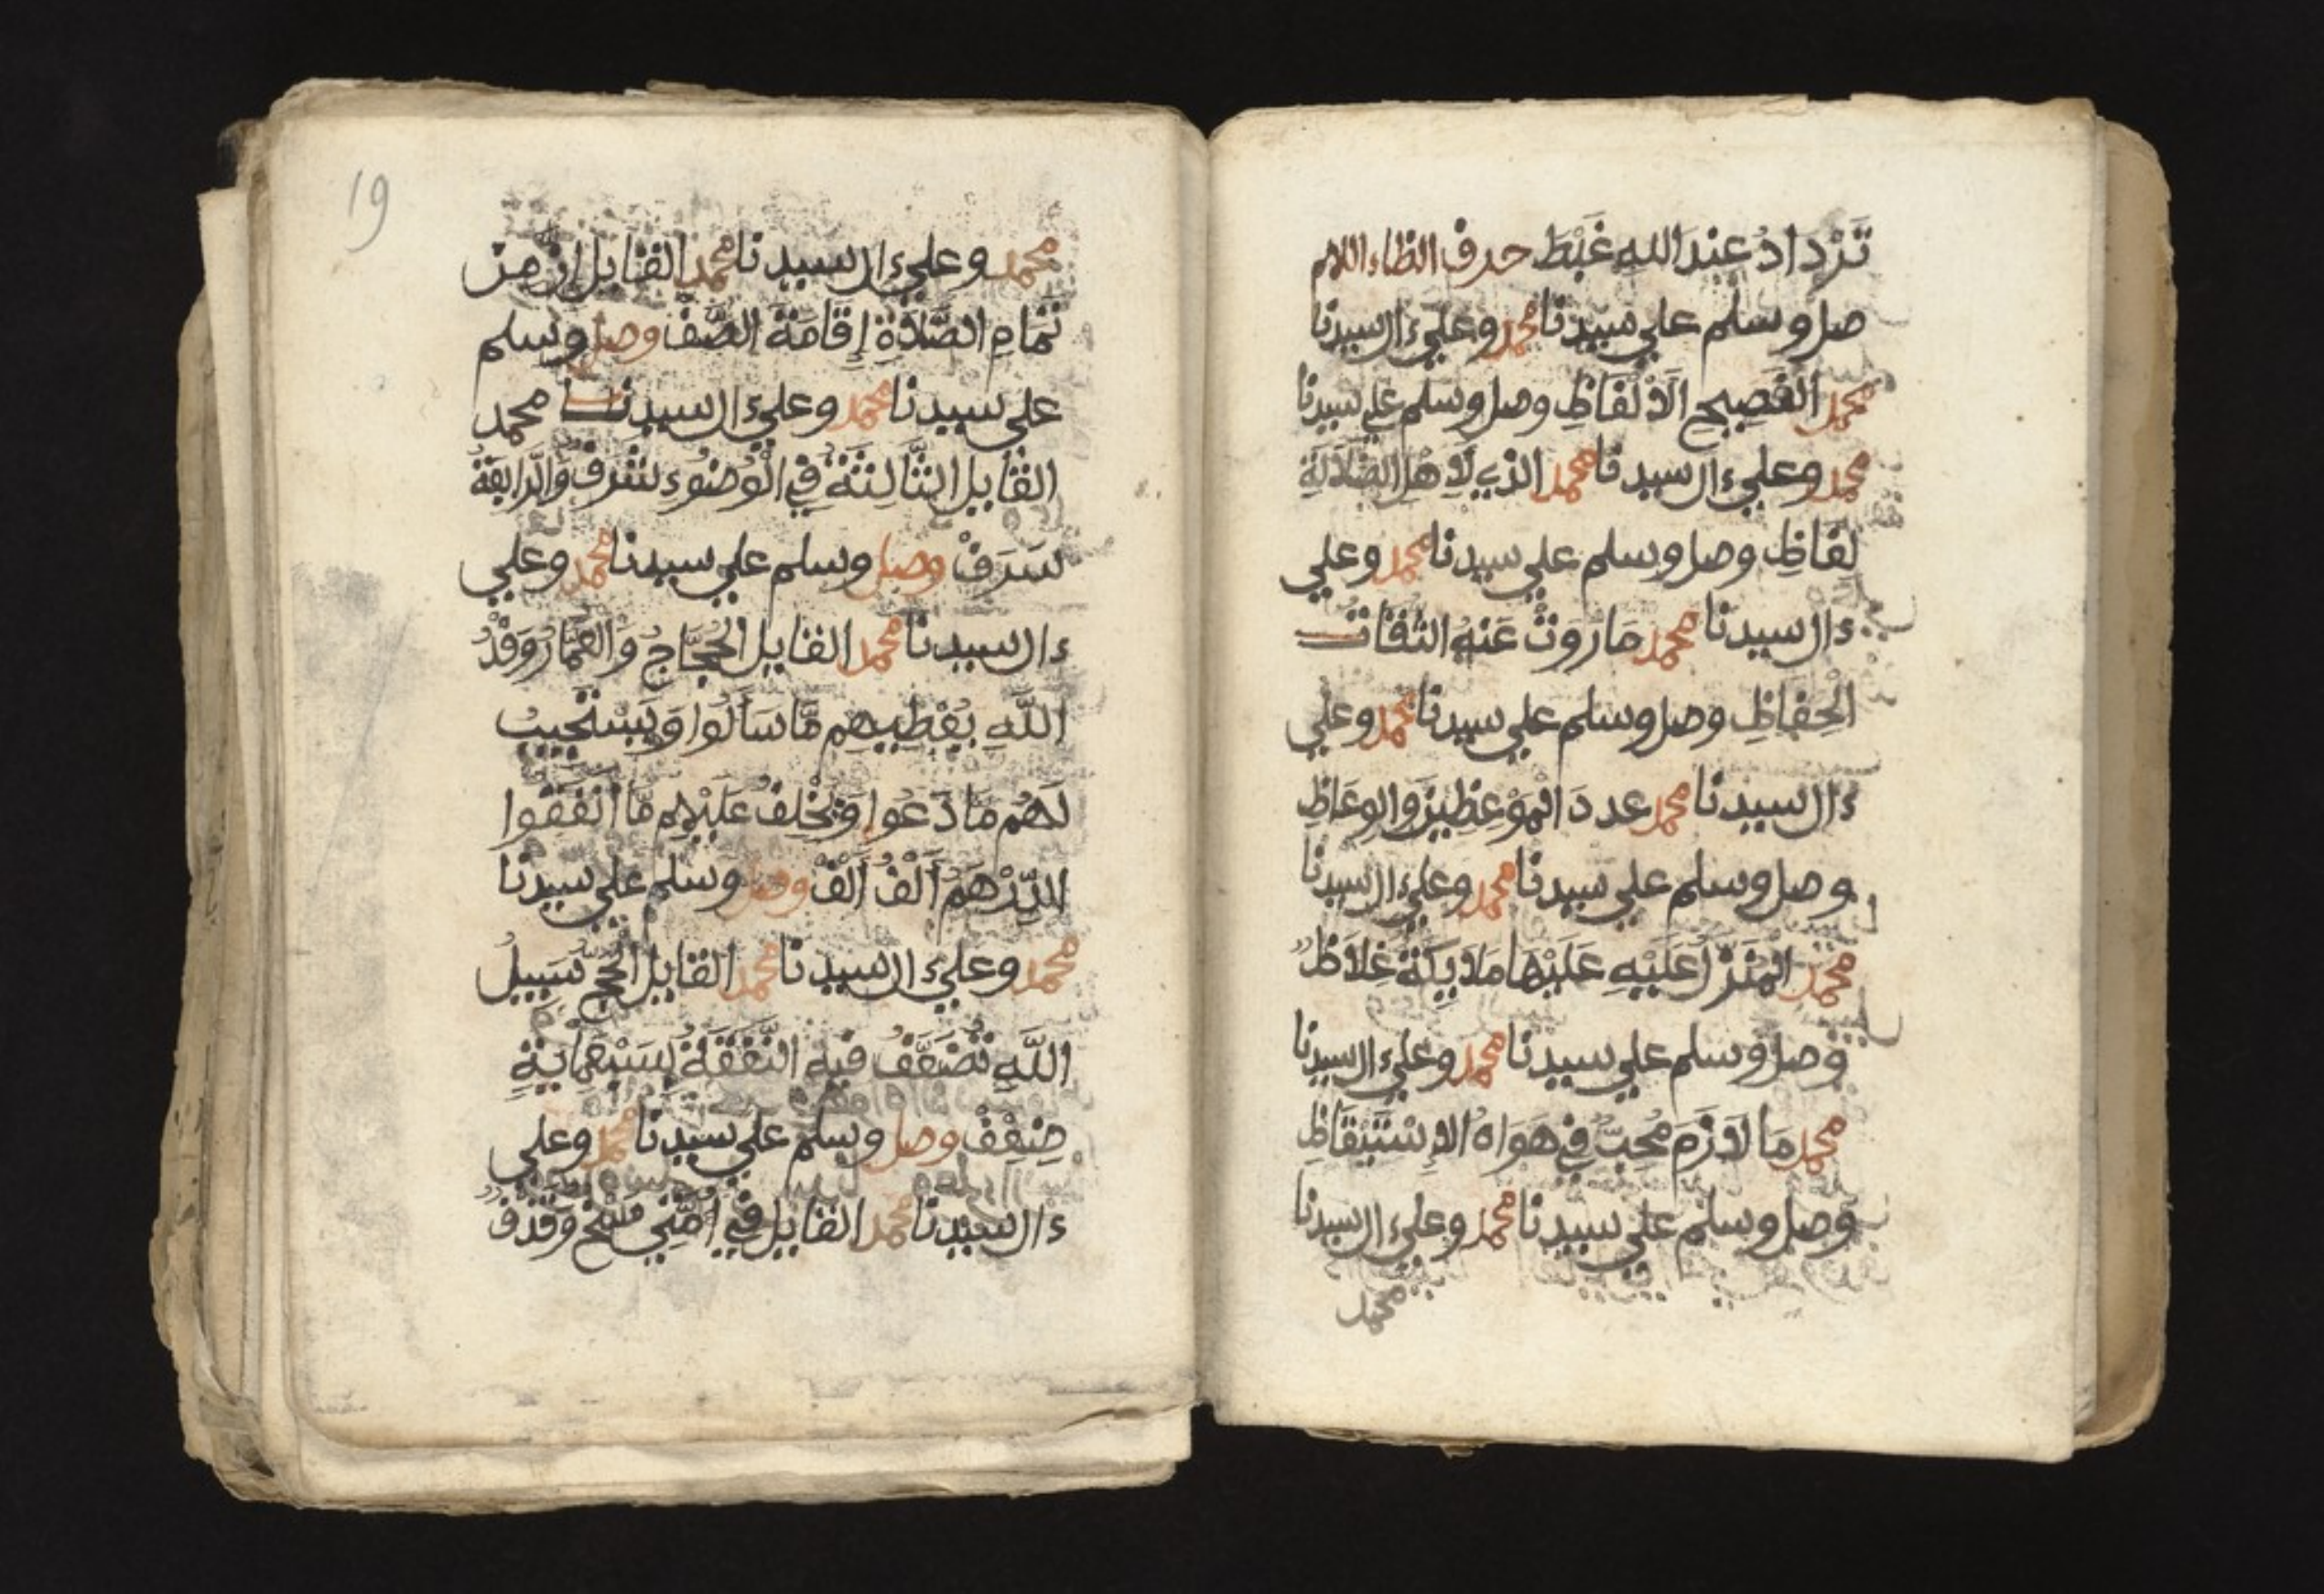 تَزْدَادُ عِندَ اللهِ غَبْطَ حرف الظاء اللهم
صل وسلم علي سيدنا محمد وعلي ءال سيدنا
محمد الفَصِيحِ الَالْفَاظِ وصل وسلم علي سيدنا
محمد وعلي ءال سيدنا محمد الذي لَاهْلِ الضَّلَالَةِ
لَفَاظِ وصل وسلم علي سيدنا محمد وعلي
ءال سيدنا محمد مَا رَوَتْ عَنهُ الثقات
الْحِفَاظِ وصل وسلم علي سيدنا محمد وعلي
ءال سيدنا محمد عدد الْمَوْعِظِينَ والوعاظِ
وصل وسلم علي سيدنا محمد وعلي ءال سيدنا
محمد الْمُنَزَّلِ عَلَيْهِ عَلَيْهَا مَلَايِكَةٌ غِلَاظٌ
وصل وسلم علي سيدنا محمد وعلي ءال سيدنا
محمد مَا لَازَمَ مُحِبٌّ فِي هَوَاهُ الاِسْتَيْقَاظِ
وصل وسلم علي سيدنا محمد وعلي ءال سيدنا
محمد
19
محمد وعلي ءال سيدنا محمد القايل اِنْ مِنْ
تَمَامِ الصَّلَاةِ إِقَامَةَ الصَّفْ وصل وسلم
علي سيدنا محمد وعلي ءال سيدنا محمد
القايل الثَّالِثَةُ فِي الْوُضُوءِ شَرَفْ وَالرَّابِعَةُ
سَرَفْ وصل وسلم علي سيدنا محمد وعلي
ءال سيدنا محمد القايل الْحُجَّاجُ وَالعُمَّارُ وَفْدُ
اللَّهِ يُعْطِيهِم مَّا سَأَلُوا وَيَسْتَجِيبُ
لَهُم مَا دَعُوا وَيُخْلِفُ عَلَيْهِم مَّا أَنْفَقُوا
الدِّرْهَمُ أَلْفُ أَلْفْ وصل وسلم علي سيدنا
محمد وعلي ءال سيدنا محمد القايل الْحَجُّ سَبِيلُ
اللَّهِ تُضَعَّفُ فيه النَّفَقَةُ بِسَبْعِمايَةِ
ضِعْفْ وصل وسلم علي سيدنا محمد وعلي
ءال سيدنا محمد القايل فِي أُمَّتِي مَسْخٌ وَقَذْفٌ